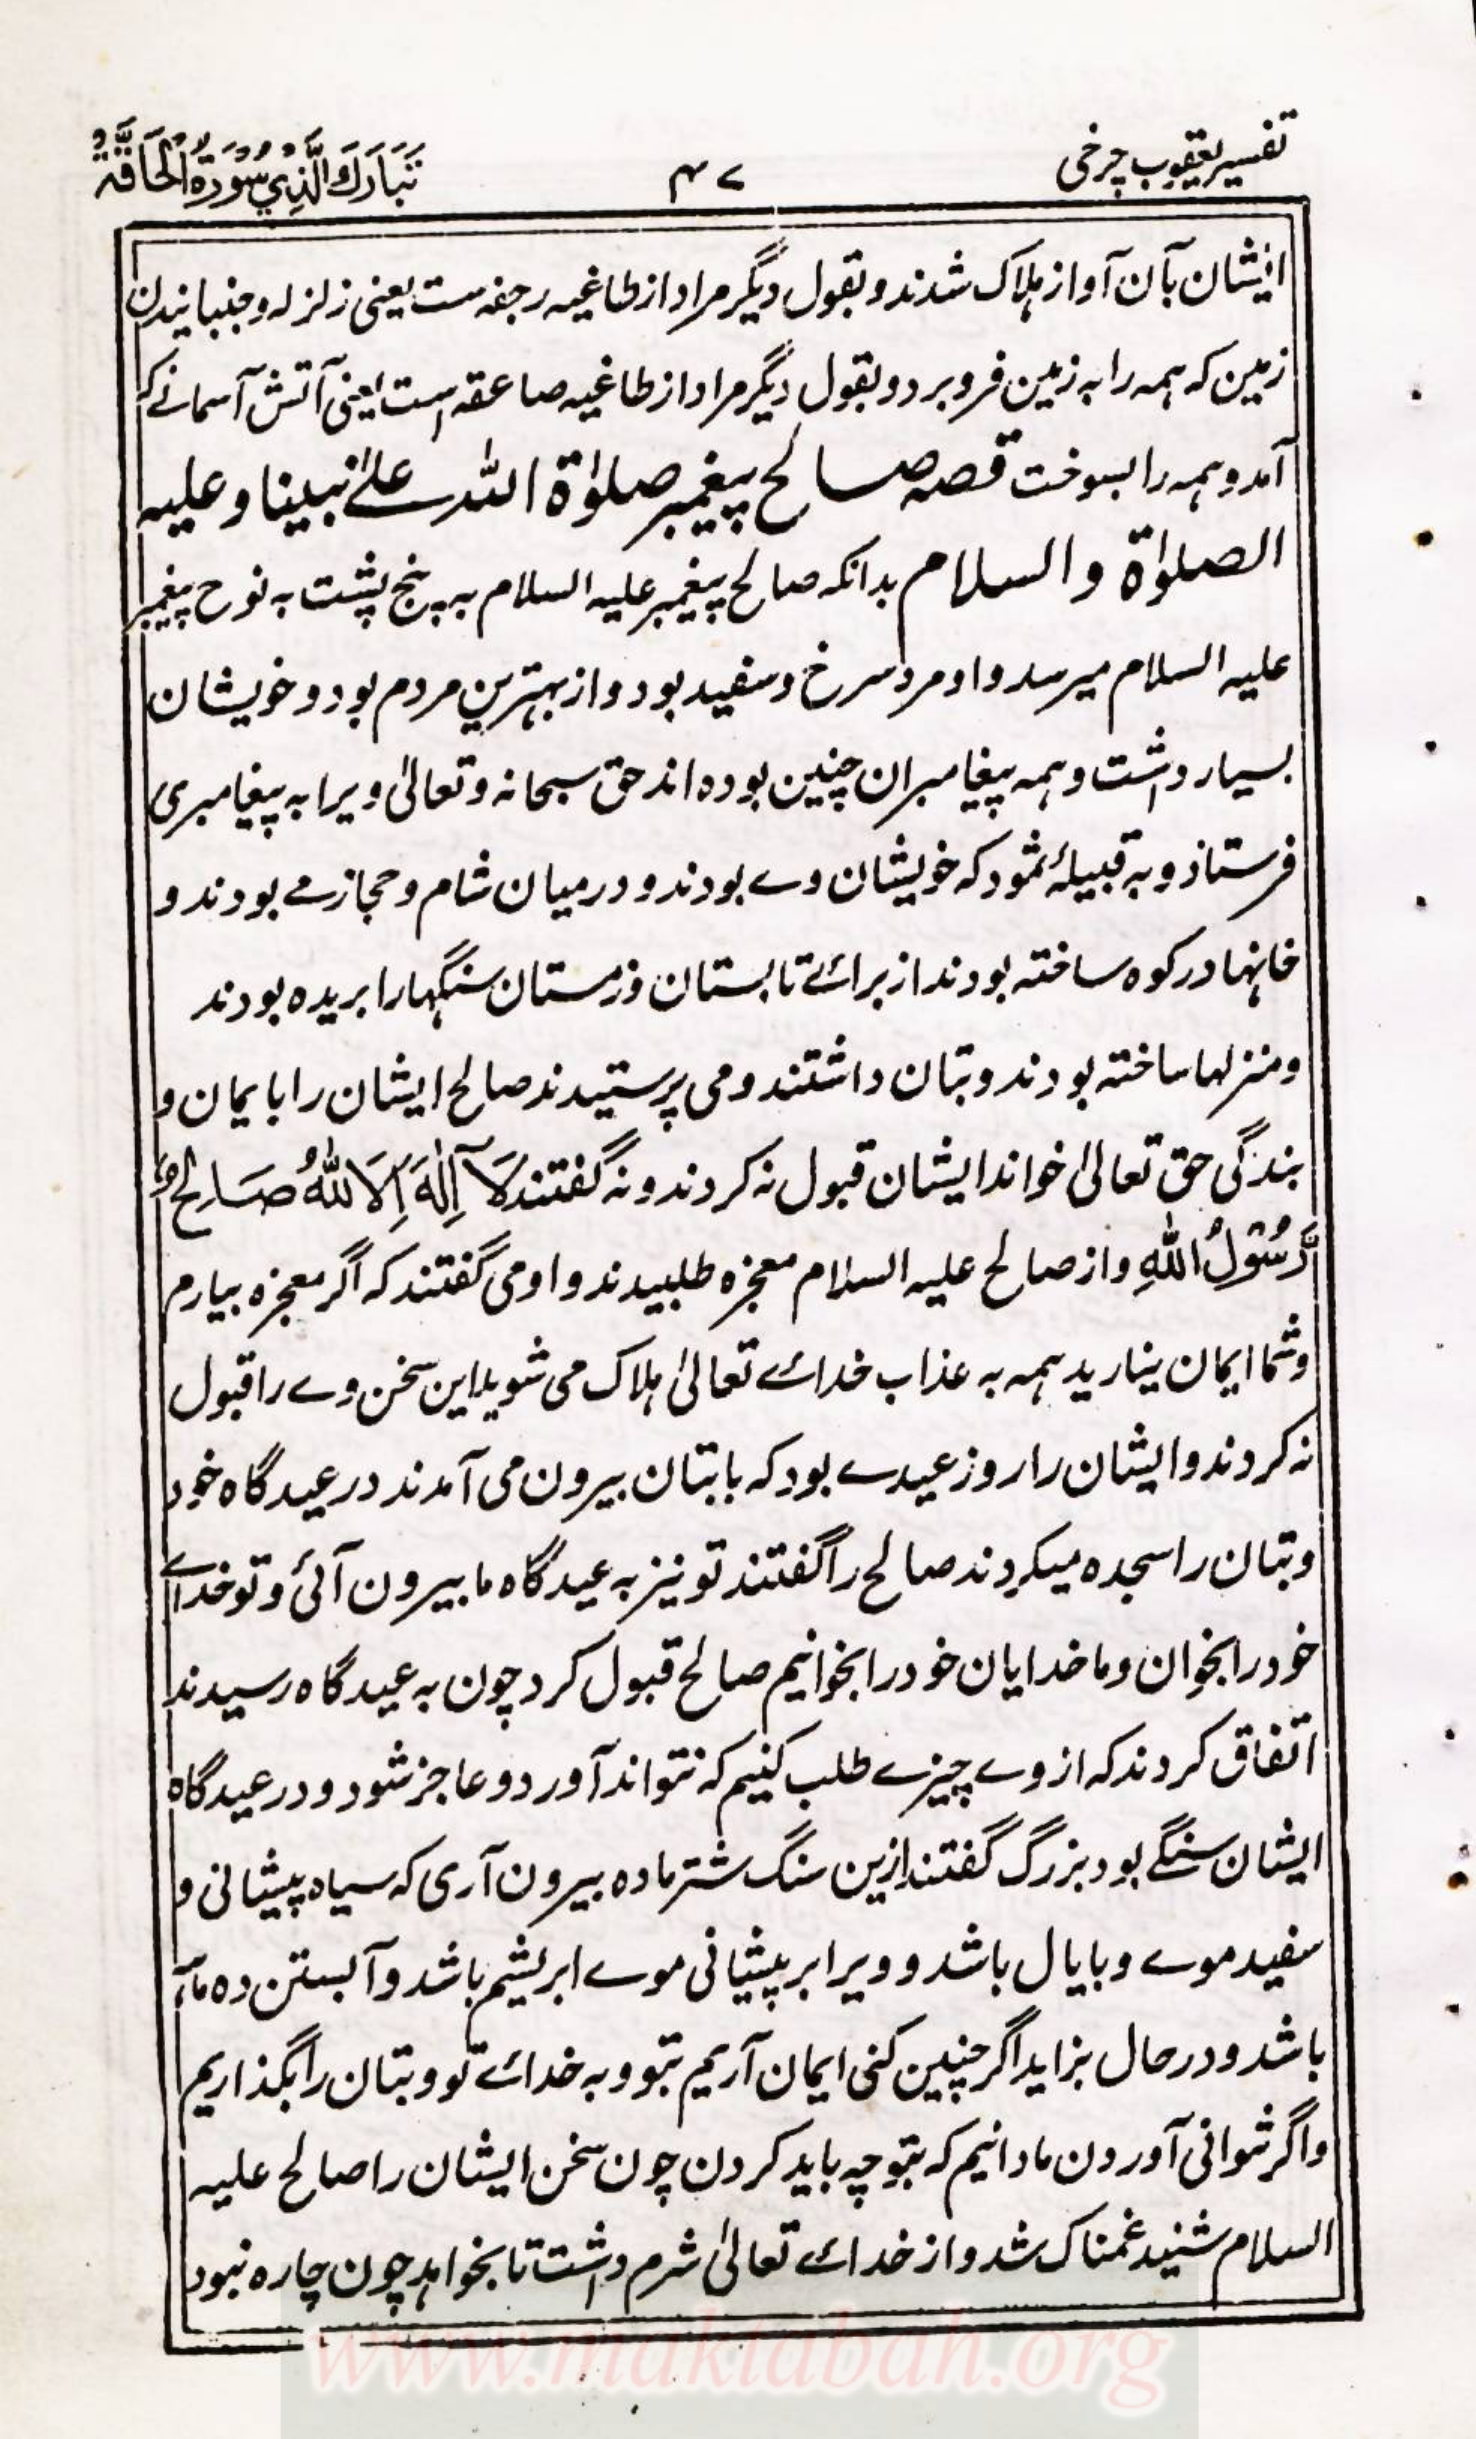 تفسیر یعقوب چرخی
۴۷
تَبَارَكَ الَّذِي سُوْرَةُ الْحَاقَّةُ
ایشان بآن آواز ہلاک شدند و بقول دیگر مراد از طاغیہ رجفہ ست یعنی زلزلہ و جنبانیدن
زمین کہ ہمہ را بہ زمین فرو برد و بقول دیگر مراد از طاغیہ صاعقہ است یعنی آتش آسمانے کہ
آمد و ہمہ را بسوخت قصہ صالح پیغمبر صلوٰۃ اللہ علےٰ نبینا و علیہ
الصلوٰۃ والسلام بدانکہ صالح پیغمبر علیہ السلام بہ پنج پشت بہ نوح پیغمبر
علیہ السلام میرسد و او مرد سرخ و سفید بود و از بہترین مردم بود و خویشان
بسیار داشت و ہمہ پیغامبران چنین بودہ اند حق سبحانہ و تعالیٰ ویرا بہ پیغامبری
فرستاد و بہ قبیلۂ ثمود کہ خویشان وے بودند و درمیان شام و حجاز مے بودند و
خانہا در کوہ ساختہ بودند از برائے تابستان و زمستان سنگہا را بریدہ بودند
و منزلہا ساختہ بودند و بتان داشتند و می پرستیدند صالح ایشان را بایمان و
بندگی حق تعالیٰ خواند ایشان قبول نہ کردند و نہ گفتند لَآ اِلٰهَ اِلَّا اللهُ صَالِحٌ
رَّسُوْلُ اللهِ و از صالح علیہ السلام معجزہ طلبیدند و او می گفتند کہ اگر معجزہ بیارم
و شما ایمان نیارید ہمہ بہ عذاب خدائے تعالیٰ ہلاک می شوید این سخن وے را قبول
نہ کردند و ایشان را روز عیدے بود کہ بابتان بیرون می آمدند در عیدگاہ خود
و بتان را سجدہ میکردند صالح را گفتند تو نیز بہ عیدگاہ ما بیرون آئی و تو خدائے
خود را بخوان و ما خدایان خود را بخوانیم صالح قبول کرد چون بہ عیدگاہ رسیدند
اتفاق کردند کہ از وے چیزے طلب کنیم کہ نتواند آورد و عاجز شود و در عیدگاہ
ایشان سنگے بود بزرگ گفتند ازین سنگ شتر مادہ بیرون آری کہ سیاہ پیشانی و
سفید موے و بایال باشد و ویرا بر پیشانی موے ابریشم باشد و آبستن دہ ماہہ
باشد و در حال بزاید اگر چنین کنی ایمان آریم بتو و بہ خدائے تو و بتان را بگذاریم
و اگر نتوانی آوردن ما دانیم کہ بتو چہ باید کردن چون سخن ایشان را صالح علیہ
السلام شنید غمناک شد و از خدائے تعالیٰ شرم داشت تا بخواہد چون چارہ نبود
www.maktabah.org